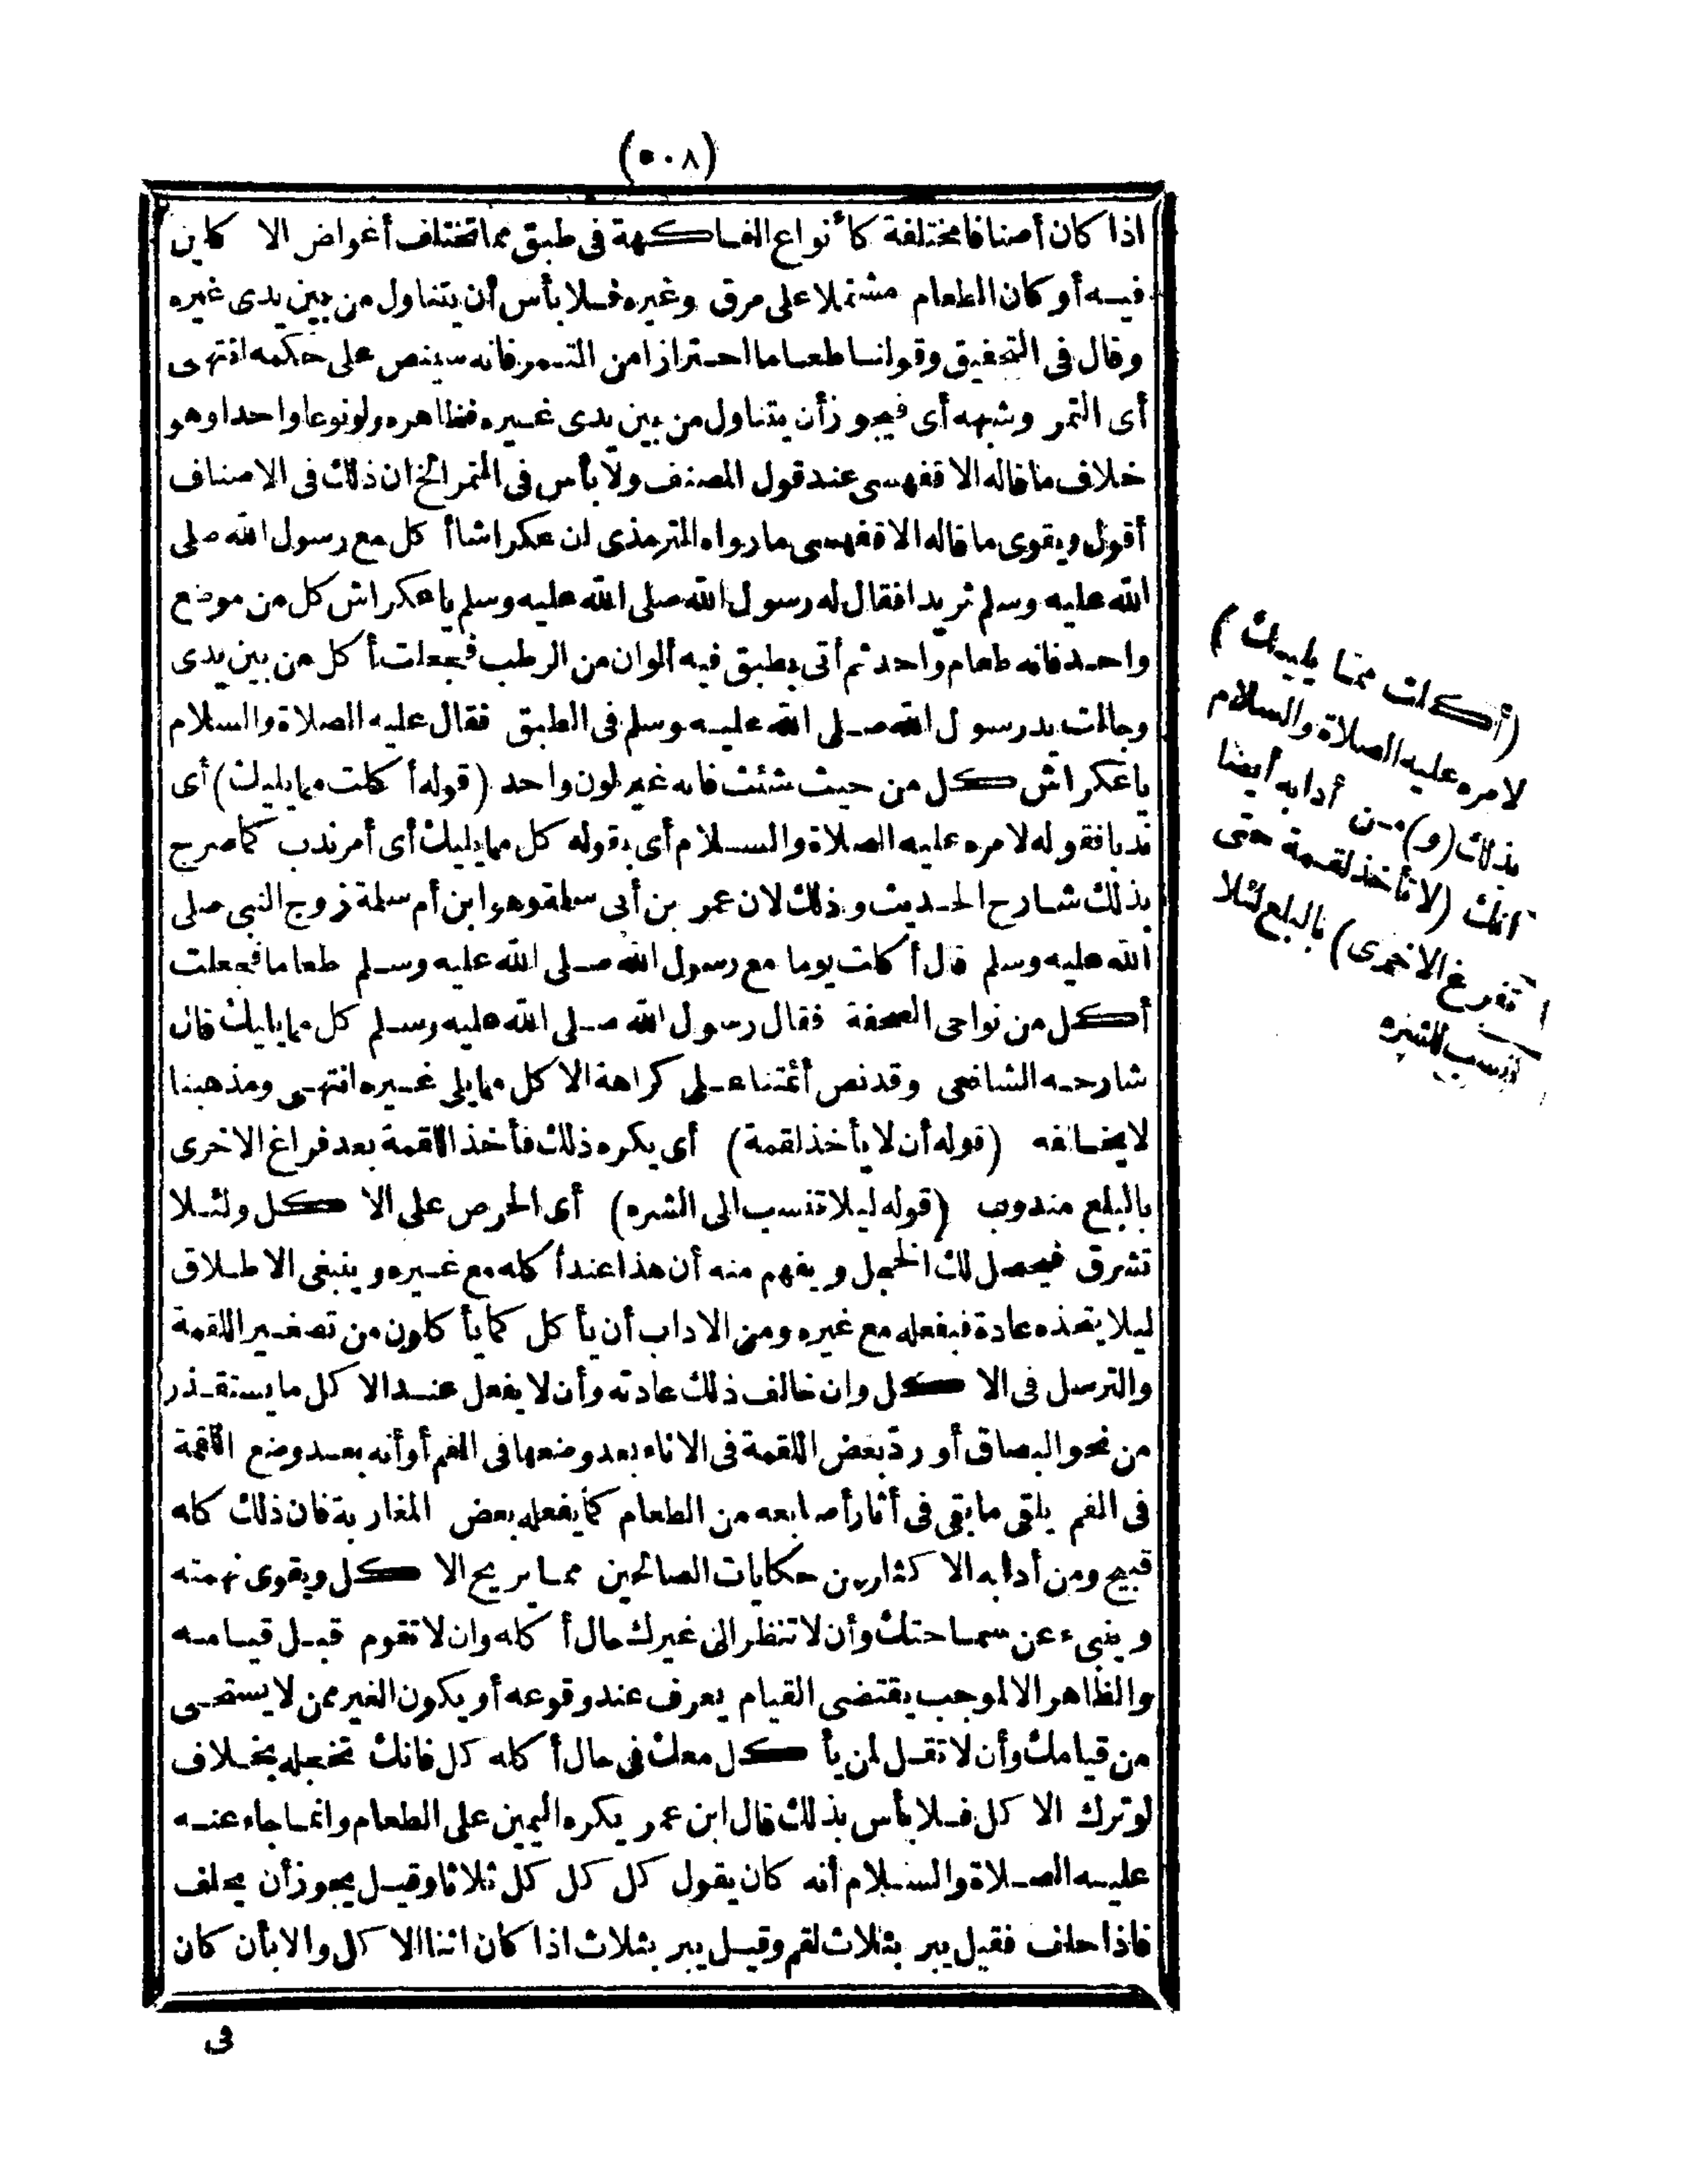 (٥٠٨)
اذا كان أصنافا مختلفة كأنواع الفاكهة فى طبق مما تختلف أغراض الا كلين
فيه أو كان الطعام مشتملا على مرق وغيره فلا بأس أن يتناول من بين يدى غيره
وقال فى التحقيق وقولنا طعاما احترازا من التمر فانه سينص على حكمه انتهى
أى التمر وشبهه أى فيجوز أن يتناول من بين يدى غيره فظاهره ولو نوعا واحدا وهو
خلاف ما قاله الاقفهسى عند قول المصنف ولا بأس فى التمر الخ ان ذلك فى الاصناف
أقول ويقوى ما قاله الاقفهسى ما رواه الترمذى ان عكراشا أكل مع رسول الله صلى
الله عليه وسلم ثريدا فقال له رسول الله صلى الله عليه وسلم يا عكراش كل من موضع
واحد فانه طعام واحد ثم أتى بطبق فيه ألوان من الرطب فجعلت أكل من بين يدى
وجالت يد رسول الله صلى الله عليه وسلم فى الطبق فقال عليه الصلاة والسلام
يا عكراش كل من حيث شئت فانه غير لون واحد (قوله أكلت مما يليك) أى
ندبا فقوله لامره عليه الصلاة والسلام أى بقوله كل مما يليك أى أمر ندب كما صرح
بذلك شارح الحديث وذلك لان عمر بن أبى سلمة وهو ابن أم سلمة زوج النبى صلى
الله عليه وسلم قال أكلت يوما مع رسول الله صلى الله عليه وسلم طعاما فجعلت
أكل من نواحى الصحفة فقال رسول الله صلى الله عليه وسلم كل مما يليك قال
شارحه الشافعى وقد نص أئمتنا على كراهة الاكل مما يلى غيره انتهى ومذهبنا
لا يخالفه (قوله أن لا يأخذ لقمة) أى يكره ذلك فأخذ اللقمة بعد فراغ الاخرى
بالبلع مندوب (قوله ليلا تنسب الى الشره) أى الحرص على الاكل ولئلا
تشرق فيحصل لك الخجل ويفهم منه أن هذا عند أكله مع غيره وينبغى الاطلاق
ليلا يتخذه عادة فيفعله مع غيره ومن الاداب أن يأكل كما يأكلون من تصغير اللقمة
والترسل فى الاكل وان خالف ذلك عادته وأن لا يفعل عند الاكل ما يستقذر
من نحو البصاق أو ردّ بعض اللقمة فى الاناء بعد وضعها فى الفم أو أنه بعد وضع اللقمة
فى الفم يلقى ما بقى فى أثار أصابعه من الطعام كما يفعله بعض المغاربة فان ذلك كله
قبيح ومن أدابه الاكثار من حكايات الصالحين مما يريح الاكل ويقوى نهمته
وينبىء عن سماحتك وأن لا تنظر الى غيرك حال أكله وان لا تقوم قبل قيامه
والظاهر الا لموجب يقتضى القيام يعرف عند وقوعه أو يكون الغير ممن لا يستحى
من قيامك وأن لا تقل لمن يأكل معك فى حال أكله كل فانك تخجله بخلاف
لو ترك الاكل فلا بأس بذلك قال ابن عمر يكره اليمين على الطعام وانما جاء عنه
عليه الصلاة والسلام أنه كان يقول كل كل كل ثلاثا وقيل يجوز أن يحلف
فاذا حلف فقيل يبر بثلاث لقم وقيل يبر بثلاث اذا كان اثنا الاكل والا بأن كان
فى
(أكلت مما يليك)
لامره عليه الصلاة والسلام
بذلك (و) من أدابه أيضا
انك (لا تأخذ لقمة حتى
تفرغ الاخرى) بالبلع لئلا
تنسب للشره